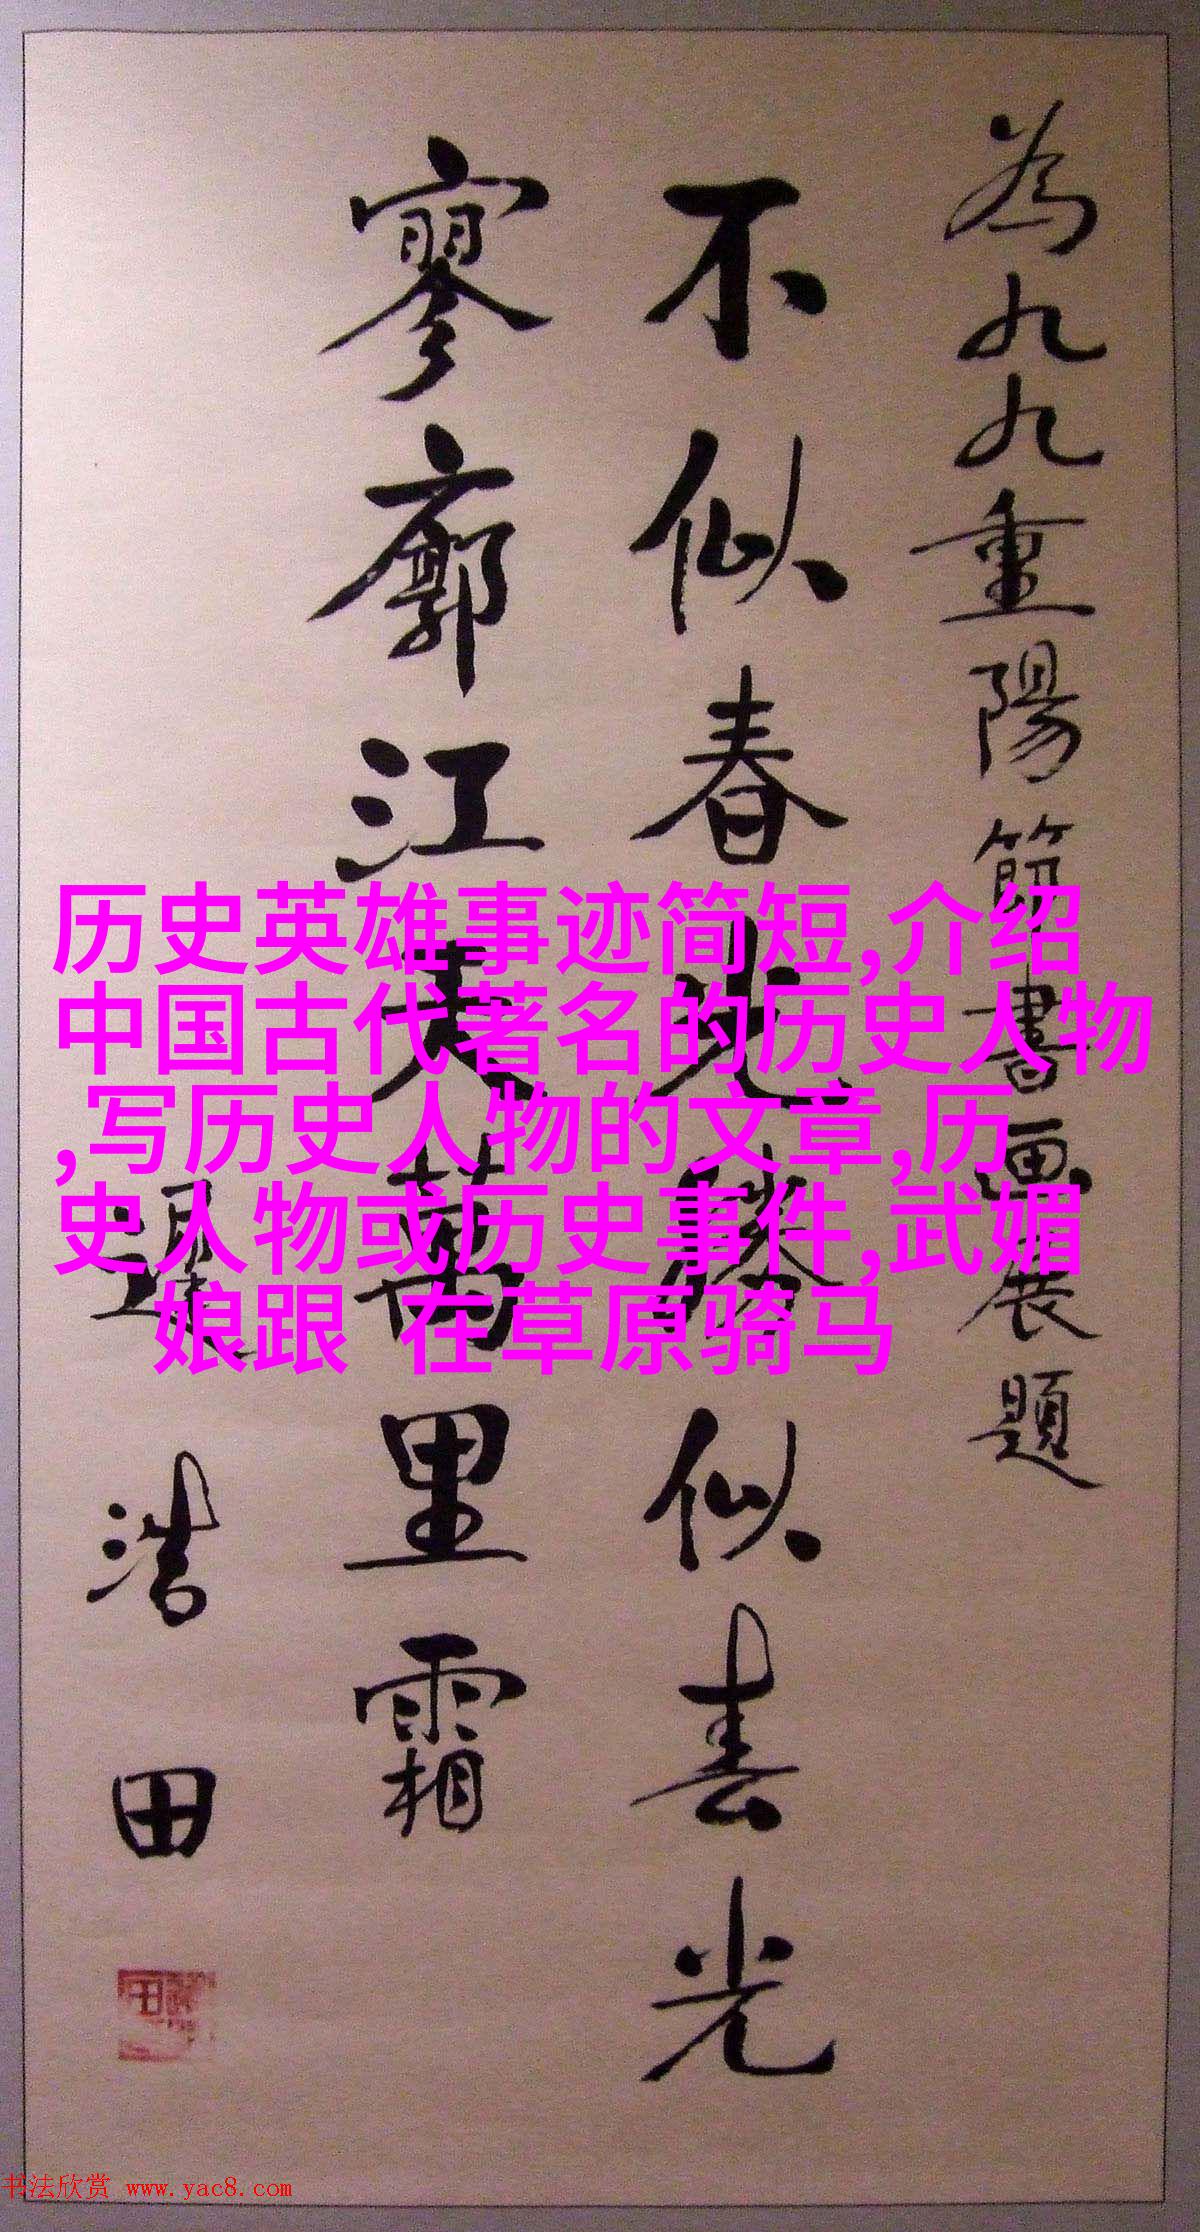 為九九重陽節書画展題
不似春光勝似春光
寥廓江天萬里霜
遲浩田
历史英雄事迹简短,介绍
中国古代著名的历史人物
,写历史人物的文章,历
史人物或历史事件,武媚
娘跟 在草原骑马
书法欣赏 www.yac8.com